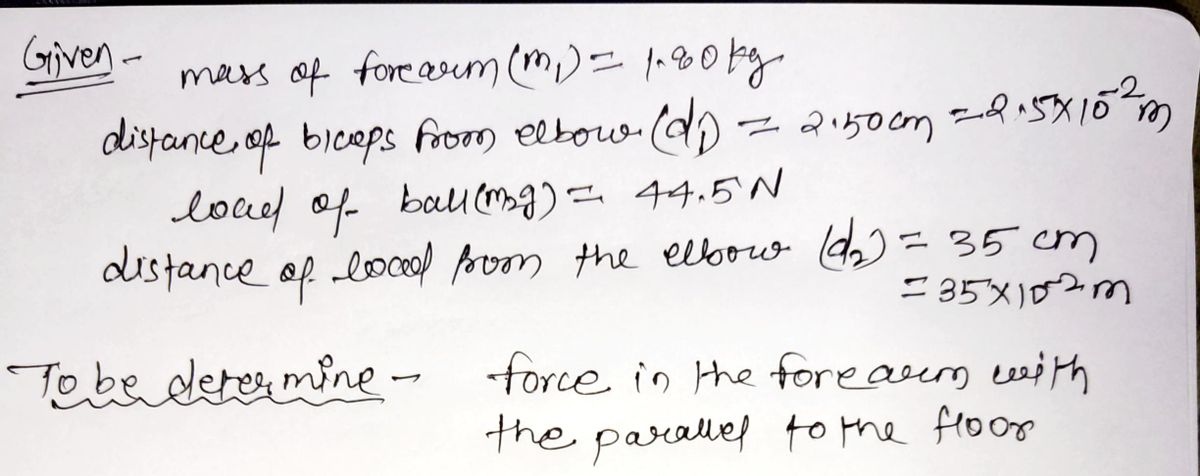 Given - mass of forearm (m₁) = 1.80 kg
distance of biceps from elbow (d₁) = 2.50 cm = 2.5 × 10⁻² m
load of ball (m₂g) = 44.5 N
distance of load from the elbow (d₂) = 35 cm
= 35 × 10⁻² m
To be determine - force in the forearm with
the parallel to the floor